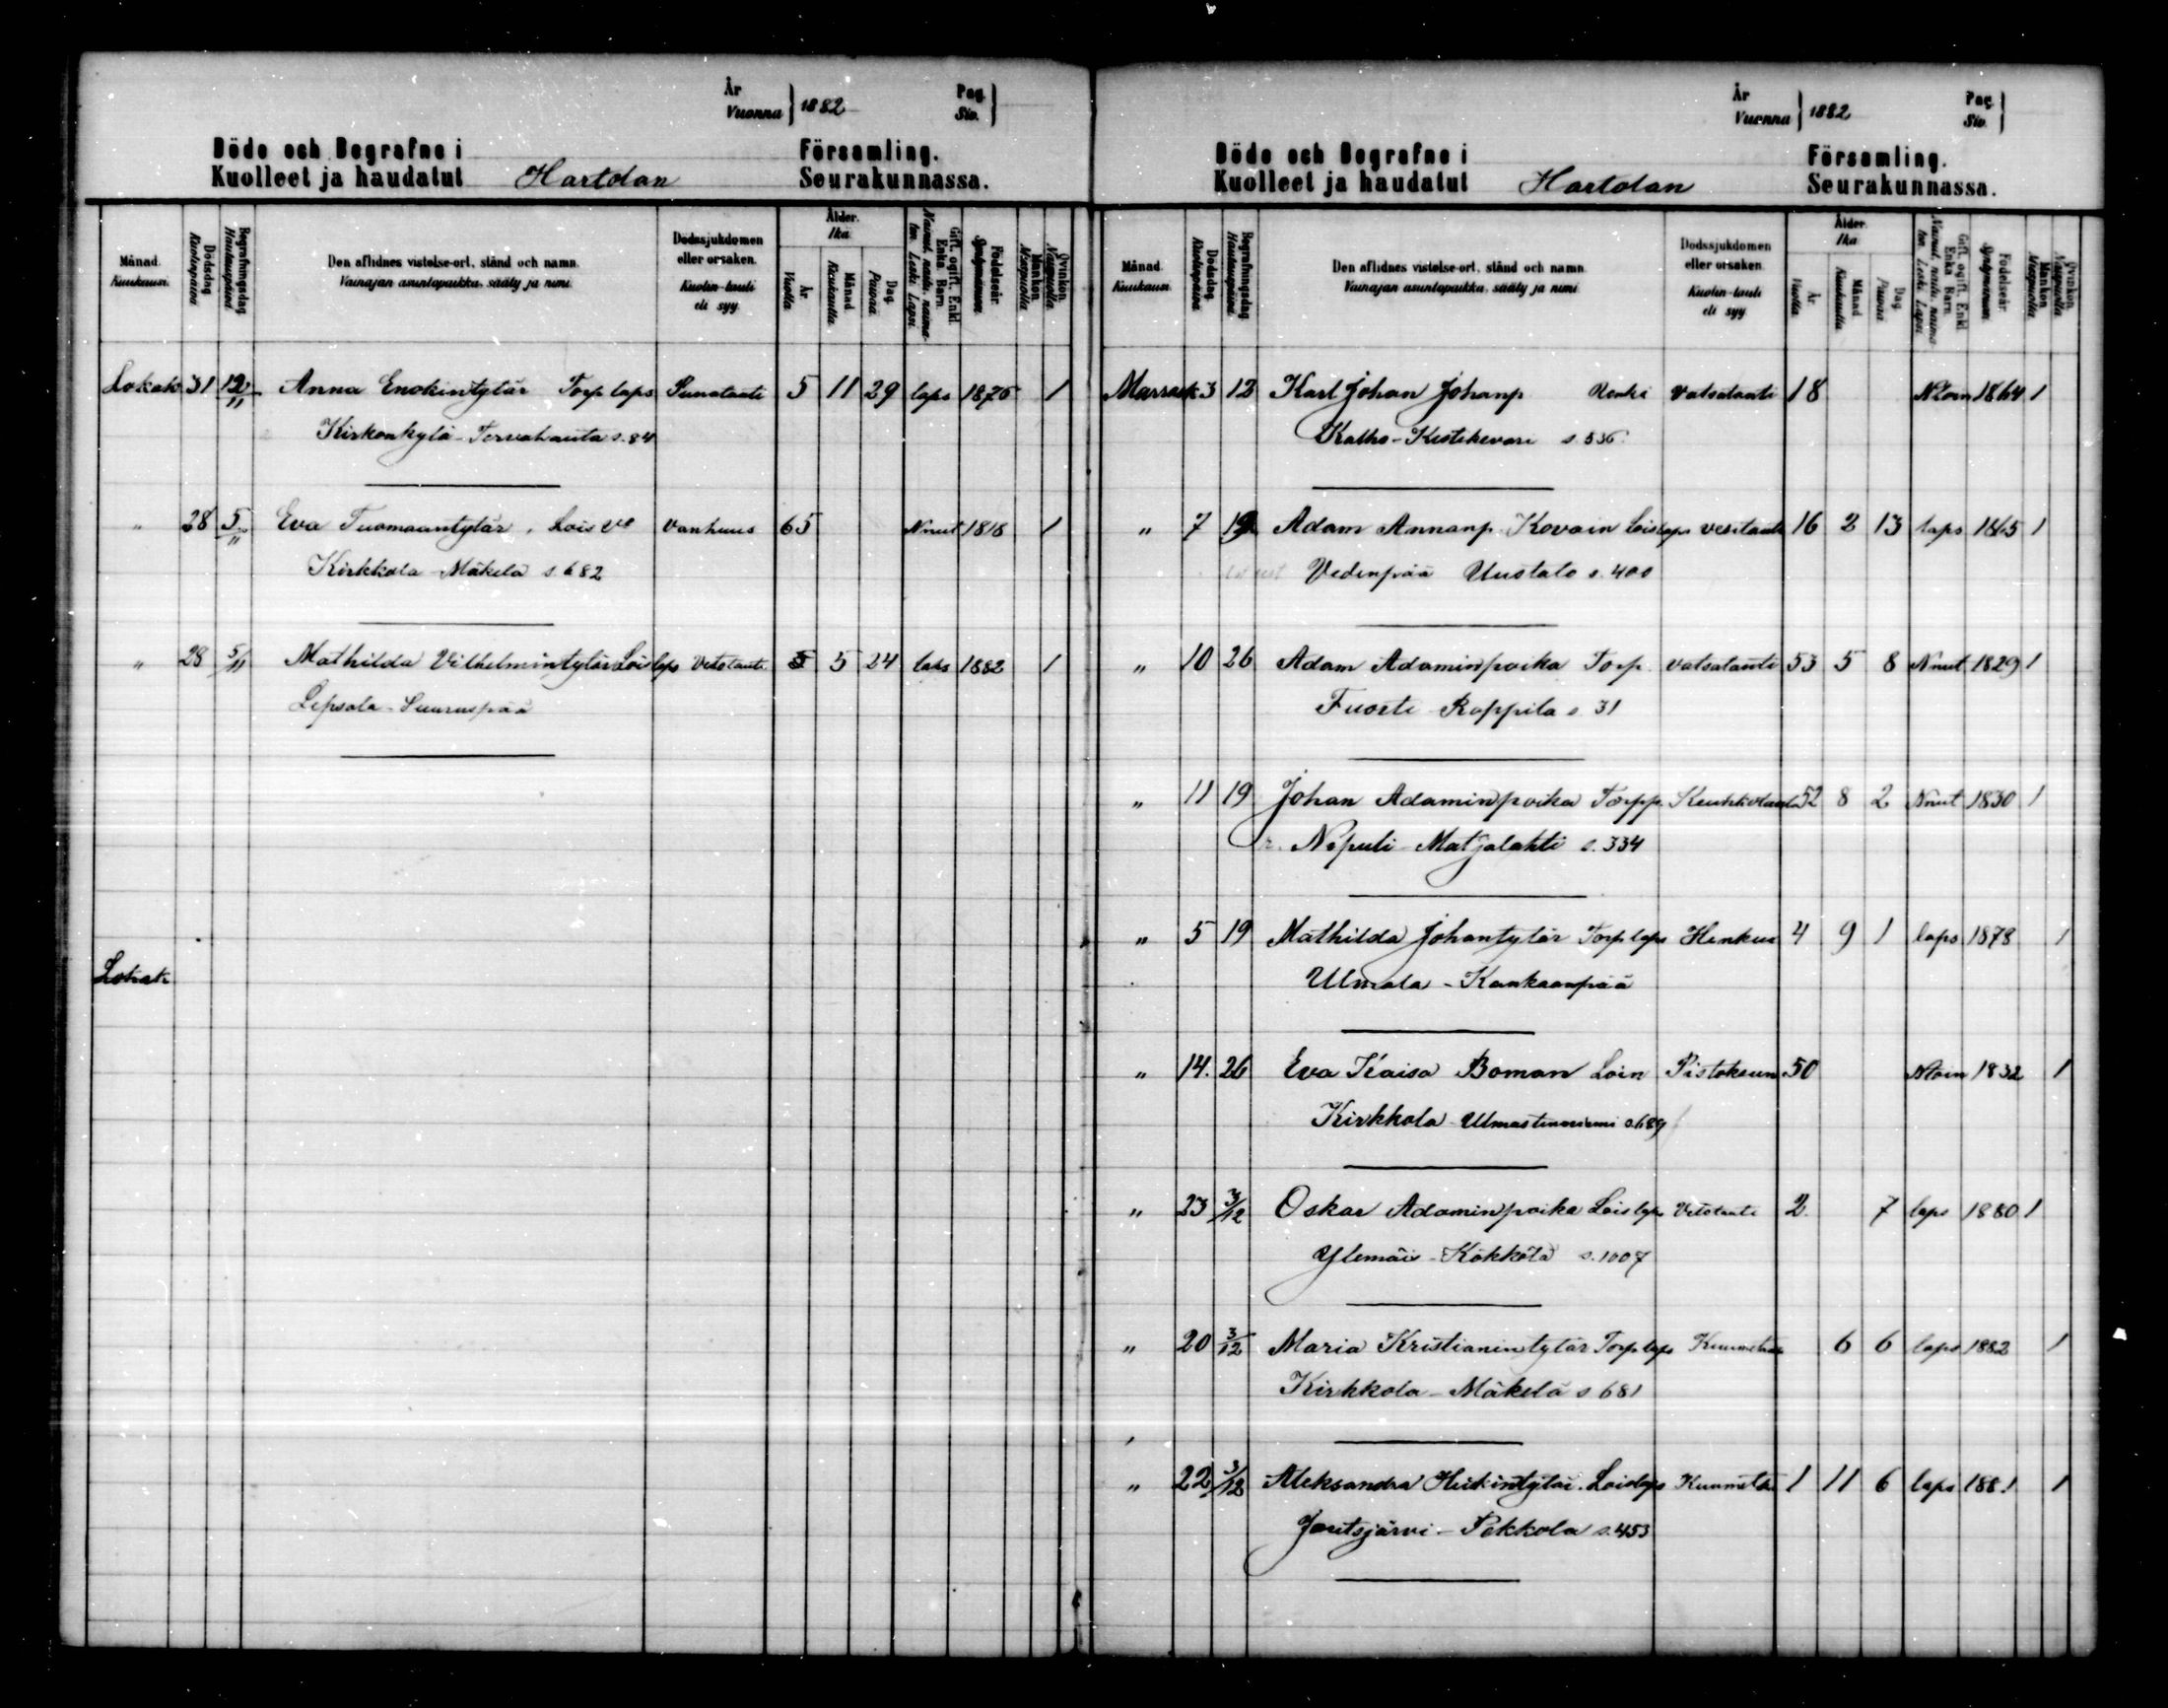 År
Vuonna } 1882
Pag.
Siv. }
Döde och Begrafne i Församling.
Kuolleet ja haudatut Hartolan Seurakunnassa.
Månad. Kuukausi.
Dödsdag Kuolinpäivä
Begrafningsdag Hautauspäivä
Den aflidnes vistelse-ort, stånd och namn.
Vainajan asuntopaikka, sääty ja nimi.
Dödssjukdomen eller orsaken.
Kuolin-tauti eli syy.
Ålder. Ikä.
År. Vuotta
Månad Kuukautta
Dag. Päivää
Gift, ogift, Enkl. Enka Barn.
Födelseår. Syntymävuosi.
Mankön. Miespuolta
Qvinkön. Naispuolta
Lokak 31 12/11 Anna Enokintytär Torp laps Punatauti 5 11 29 laps 1876 1
Kirkonkylä - Tervahauta s. 84
" 28 5/11 Eva Tuomaantytär, Lois vo Vanhuus 65 Nnut 1818 1
Kirkkola - Mäkelä s. 682
" 28 5/11 Mathilda Vilhelmintytär Lois laps Vetotauti 5 24 laps 1882 1
Lepsala - Suuruspää
Lokak
År
Vuonna } 1882
Pag.
Siv. }
Döde och Begrafne i Församling.
Kuolleet ja haudatut Hartolan Seurakunnassa.
Månad. Kuukausi.
Dödsdag. Kuolinpäivä
Begrafningsdag. Hautauspäivä
Den aflidnes vistelse-ort, stånd och namn.
Vainajan asuntopaikka, sääty ja nimi
Dödssjukdomen eller orsaken.
Kuolin-tauti eli syy
Ålder. Ikä.
År. Vuotta
Månad Kuukautta
Dag. Päivää
Gift, ogift, Enkl. Enka Barn.
Födelseår. Syntymävuosi.
Mankön. Miespuolta
Qvinkön. Naispuolta
Marrask 3 12 Karl Johan Johanp Renki Vatsatauti 18 Ntoin 1864 1
Kalho - s. 536
" 7 19 Adam Annanp. Kovain Loislaps vesitauti 16 2 13 laps 1865 1
Vedenpää Uustalo s. 400
" 10 26 Adam Adaminpoika Torp. vatsatauti 53 5 8 Nnut 1829 1
Fuosti Roppila s. 31
" 11 19 Johan Adaminpoika Torpp. Keuhkotauti 52 8 2 Nnut 1830 1
Nipuli - Matjalahti s. 334
" 5 19 Mathilda Johantytär Torp laps Henkus 4 9 1 laps 1878 1
Ulmala - Kankaanpää
" 14. 26 Eva Kaisa Boman Loin Pistoksen 50 Ntoin 1832 1
Kirkkola - s. 689
" 23 3/12 Oskar Adaminpoika Lois laps Vetotauti 2 7 laps 1880 1
Ylemäis - Kökkölä s. 1007
" 20 3/12 Maria Kristianintytär Torp laps 6 6 laps 1882 1
Kirkkola - Mäkelä s. 681
" 22 3/12 Aleksandra Heikintytär Loislaps 1 11 6 laps 1881 1
Joutsjärvi - Pekkola s. 453